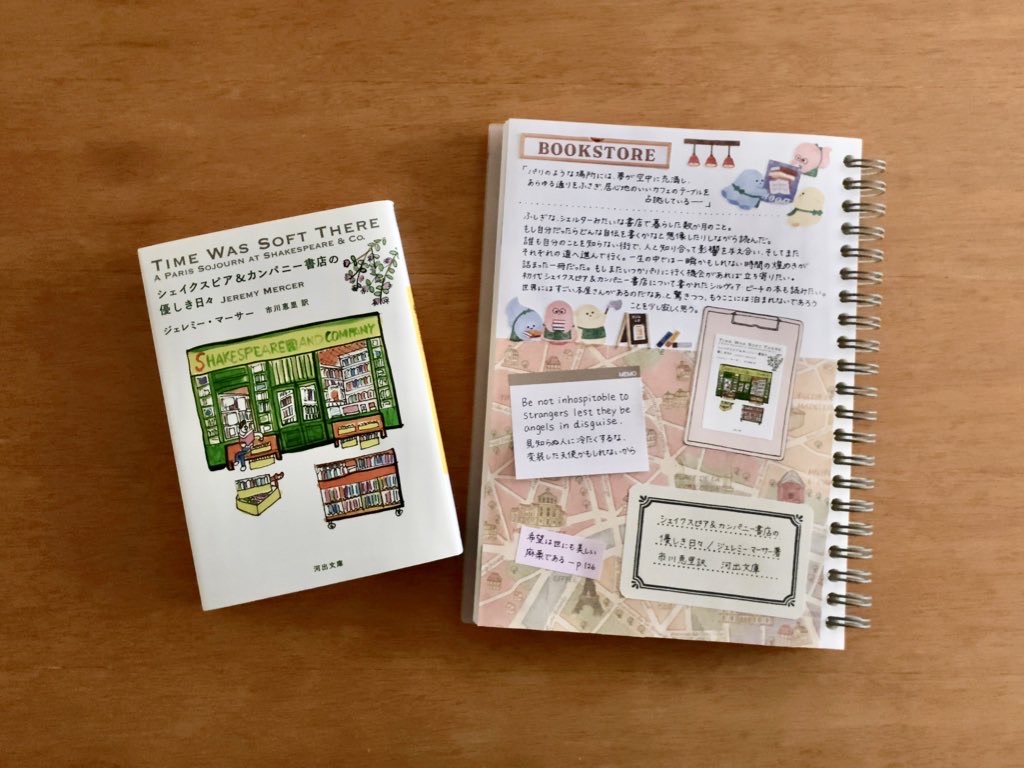 TIME WAS SOFT THERE
A PARIS SOJOURN AT SHAKESPEARE & CO.
シェイクスピア&カンパニー書店の
優しき日々 JEREMY MERCER
ジェレミー・マーサー 市川恵里 訳
SHAKESPEARE AND COMPANY
河出文庫
BOOKSTORE
「パリのような場所には、夢が空中に充満し、
あらゆる通りをふさぎ、居心地のいいカフェのテーブルを
占拠している──」
ふしぎな、シェルターみたいな書店で暮らした数か月のこと。
もし自分だったらどんな自伝を書くかなと想像したりしながら読んだ。
誰も自分のことを知らない街で、人と知り合って影響を与え合い、そしてまた
それぞれの道へ進んで行く。一生の中では一瞬かもしれない時間の煌めきが
詰まった一冊だった。もしまたいつかパリに行く機会があれば立ち寄りたい。
初代シェイクスピア&カンパニー書店について書かれたシルヴィア・ビーチの本も読みたい。
世界にはすごい本屋さんがあるのだなあ、と驚きつつ、もうここには泊まれないであろう
ことを少し寂しく思う。
MEMO
Be not inhospitable to
strangers lest they be
angels in disguise.
見知らぬ人に冷たくするな、
変装した天使かもしれないから
TIME WAS SOFT THERE
希望は世にも美しい
麻薬である ─ p.126
シェイクスピア&カンパニー書店の
優しき日々/ジェレミー・マーサー著
市川恵里訳 河出文庫